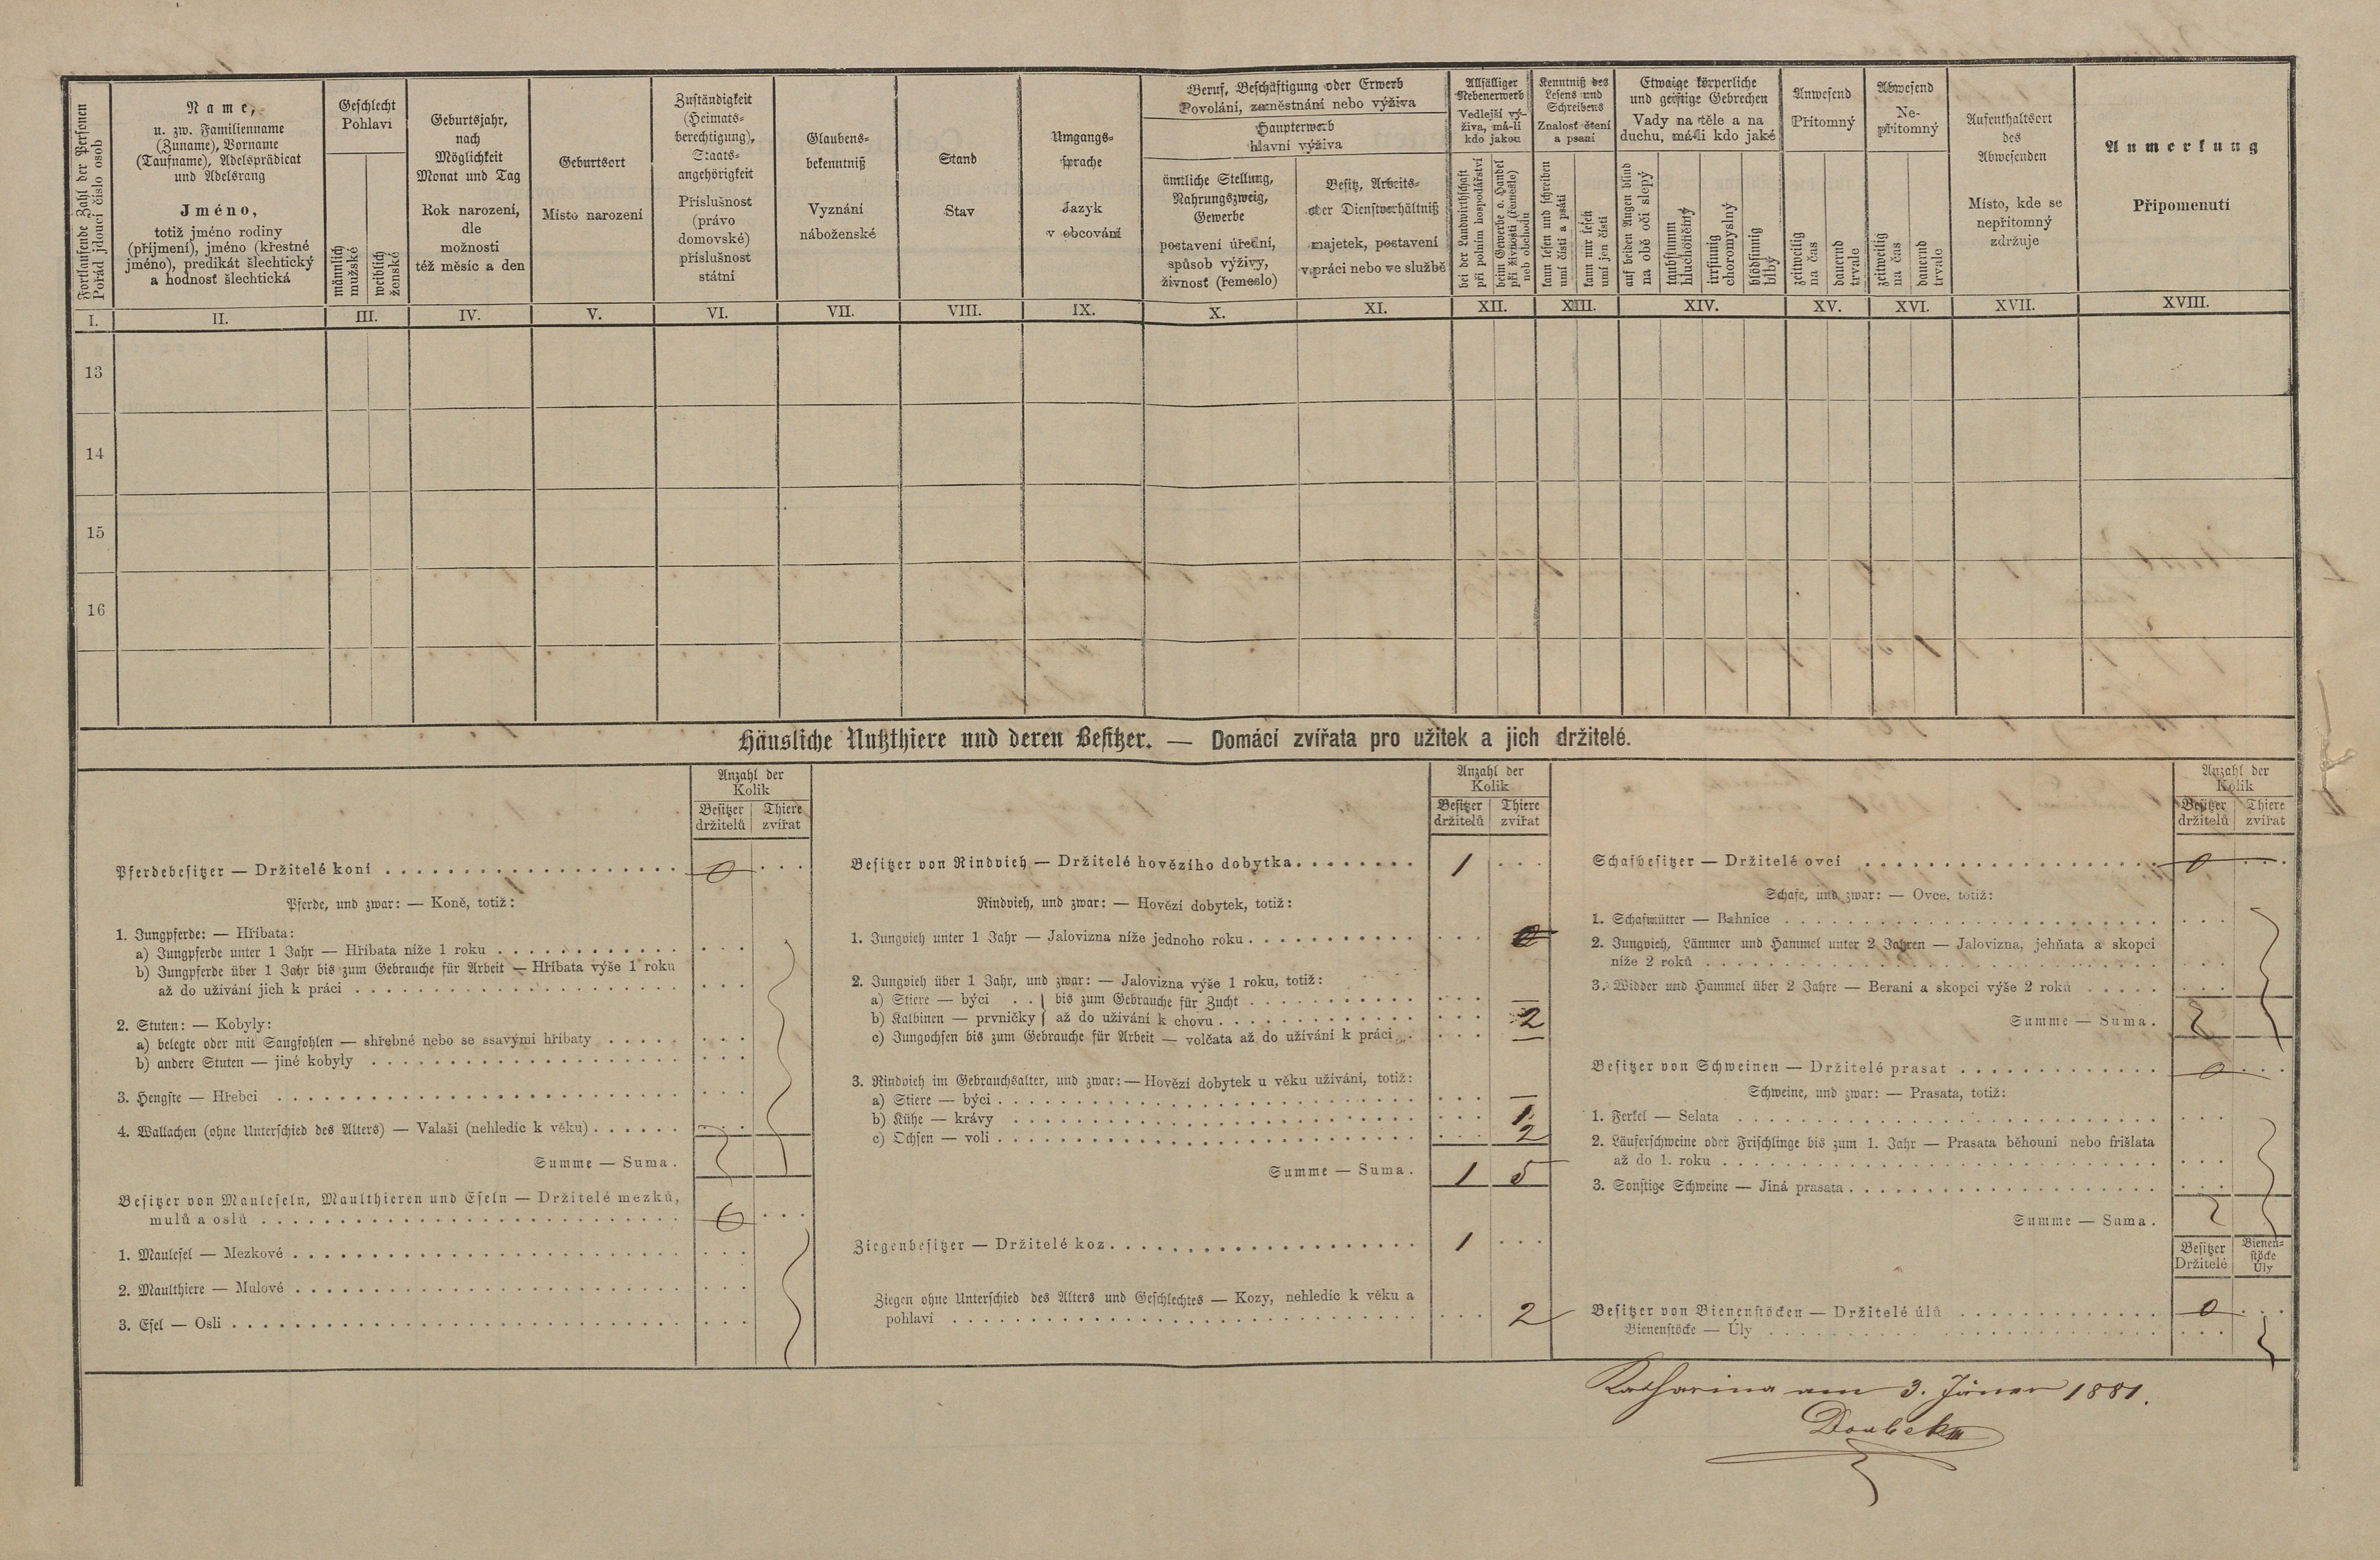 Fortlaufende Zahl der Personen
Pořád jdoucí číslo osob
Name,
u. zw. Familienname
(Zuname), Vorname
(Taufname), Adelsprädicat
und Adelsrang
Jméno,
totiž jméno rodiny
(příjmení), jméno (křestné
jméno), predikát šlechtický
a hodnosť šlechtická
Geschlecht
Pohlaví
männlich
mužské
weiblich
ženské
Geburtsjahr,
nach
Möglichkeit
Monat und Tag
Rok narození,
dle
možnosti
též měsíc a den
Geburtsort
Místo narození
Zuständigkeit
(Heimats-
berechtigung),
Staats-
angehörigkeit
Příslušnost
(právo
domovské)
příslušnost
státní
Glaubens-
bekenntniß
Vyznání
náboženské
Stand
Stav
Umgangs-
sprache
Jazyk
v obcování
Beruf, Beschäftigung oder Erwerb
Povolání, zaměstnání nebo výživa
Haupterwerb
hlavní výživa
ämtliche Stellung,
Nahrungszweig,
Gewerbe
postavení úřední,
spůsob výživy,
živnosť (řemeslo)
Besitz, Arbeits-
oder Dienstverhältniß
majetek, postavení
v práci nebo ve službě
Allfälliger
Nebenerwerb
Vedlejší vý-
živa, má-li
kdo jakou
bei der Landwirthschaft
při polním hospodářství
beim Gewerbe o. Handel
při živnosti (řemeslo)
neb obchodu
Kenntniß des
Lesens und
Schreibens
Znalosť čtení
a psaní
kann lesen und schreiben
umí čísti a psáti
kann nur lesen
umí jen čísti
Etwaige körperliche
und geistige Gebrechen
Vady na těle a na
duchu, má-li kdo jaké
auf beiden Augen blind
na obě oči slepý
taubstumm
hluchoněmý
irrsinnig
choromyslný
blödsinnig
blbý
Anwesend
Přítomný
zeitweilig
na čas
dauernd
trvale
Abwesend
Ne-
přítomný
zeitweilig
na čas
dauernd
trvale
Aufenthaltsort
des
Abwesenden
Místo, kde se
nepřítomný
zdržuje
Anmerkung
Připomenutí
I. II. III. IV. V. VI. VII. VIII. IX. X. XI. XII. XIII. XIV. XV. XVI. XVII. XVIII.
13
14
15
16
Häusliche Nutzthiere und deren Besitzer. — Domácí zvířata pro užitek a jich držitelé.
Anzahl der
Kolik
Besitzer Thiere
držitelů zvířat
Pferdebesitzer — Držitelé koní 0
Pferde, und zwar: — Koně, totiž:
1. Jungpferde: — Hříbata:
a) Jungpferde unter 1 Jahr — Hříbata níže 1 roku
b) Jungpferde über 1 Jahr bis zum Gebrauche für Arbeit — Hříbata výše 1 roku
až do užívání jich k práci
2. Stuten: — Kobyly:
a) belegte oder mit Saugfohlen — shřebné nebo se ssavými hříbaty
b) andere Stuten — jiné kobyly
3. Hengste — Hřebci
4. Wallachen (ohne Unterschied des Alters) — Valaši (nehledíc k věku)
Summe — Suma.
Besitzer von Mauleseln, Maulthieren und Eseln — Držitelé mezků,
mulů a oslů 0
1. Maulesel — Mezkové
2. Maulthiere — Mulové
3. Esel — Osli
Anzahl der
Kolik
Besitzer Thiere
držitelů zvířat
Besitzer von Rindvieh — Držitelé hovězího dobytka 1
Rindvieh, und zwar: — Hovězí dobytek, totiž:
1. Jungvieh unter 1 Jahr — Jalovizna níže jednoho roku 0
2. Jungvieh über 1 Jahr, und zwar: — Jalovizna výše 1 roku, totiž:
a) Stiere — býci . . } bis zum Gebrauche für Zucht —
b) Kalbinen — prvničky } až do užívání k chovu 2
c) Jungochsen bis zum Gebrauche für Arbeit — volčata až do užívání k práci —
3. Rindvieh im Gebrauchsalter, und zwar: — Hovězí dobytek u věku užívání, totiž:
a) Stiere — býci —
b) Kühe — krávy 1
c) Ochsen — voli 2
Summe — Suma. 1 5
Ziegenbesitzer — Držitelé koz 1
Ziegen ohne Unterschied des Alters und Geschlechtes — Kozy, nehledíc k věku a
pohlaví 2
Anzahl der
Kolik
Besitzer Thiere
držitelů zvířat
Schafbesitzer — Držitelé ovcí 0
Schafe, und zwar: — Ovce, totiž:
1. Schafmütter — Bahnice
2. Jungvieh, Lämmer und Hammel unter 2 Jahren — Jalovizna, jehňata a skopci
níže 2 roků
3. Widder und Hammel über 2 Jahre — Berani a skopci výše 2 roků
Summe — Suma.
Besitzer von Schweinen — Držitelé prasat 0
Schweine, und zwar: — Prasata, totiž:
1. Ferkel — Selata
2. Läuferschweine oder Frischlinge bis zum 1. Jahr — Prasata běhouni nebo frišlata
až do 1. roku
3. Sonstige Schweine — Jiná prasata
Summe — Suma.
Besitzer
Držitelé
Bienen-
stöcke
Úly
Besitzer von Bienenstöcken — Držitelé úlů 0
Bienenstöcke — Úly
Katharina am 3. Jäner 1881.
Doubek